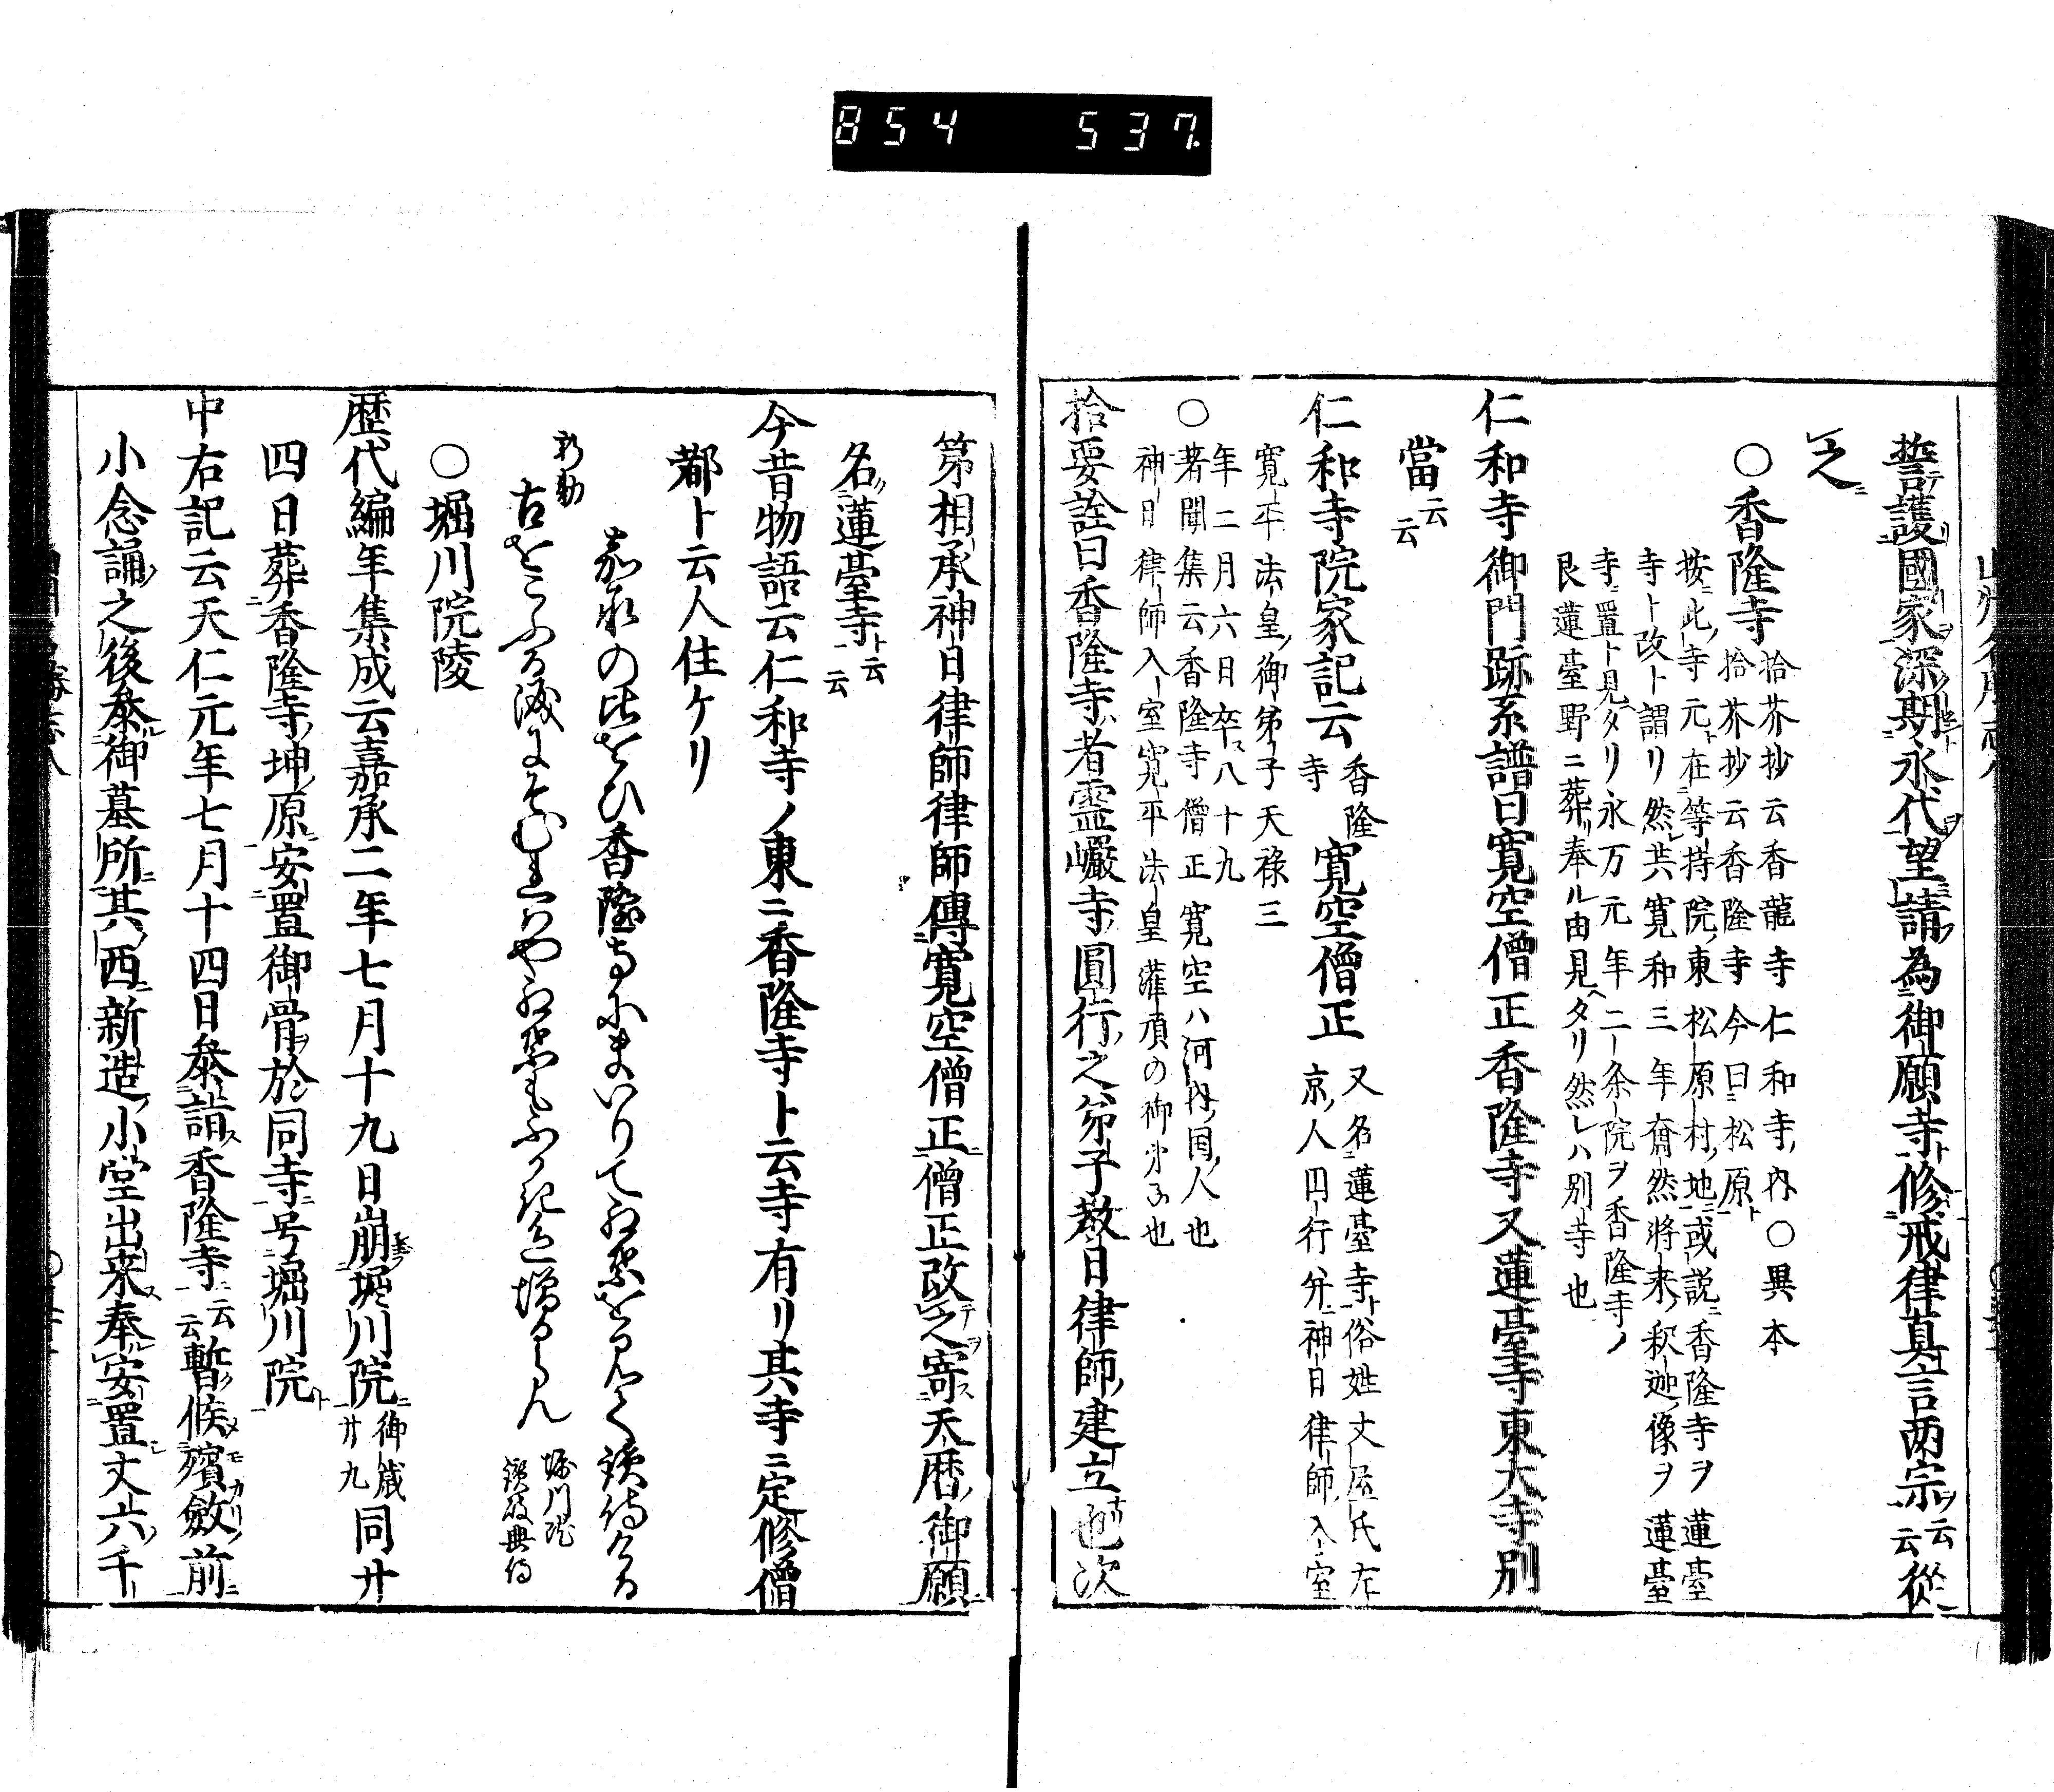 854 537
誓護國家深期永代望請為御願寺修戒律真言两宗云云從
之
○香隆寺拾芥抄云香龍寺仁和寺内○異本
拾芥抄云香隆寺今曰松原ト
按ニ此ノ寺元ト在等持院ノ東松原村ノ地ニ或説ニ香隆寺ヲ蓮臺
寺ト改ト謂リ然レ共寛和三年奝然將来ノ釈迦ノ像ヲ蓮臺
寺ニ置ト見タリ永万元年二条院ヲ香隆寺ノ
艮蓮臺野ニ葬リ奉ル由見ヘタリ然レハ別寺也
仁和寺御門跡系譜曰寛空僧正香隆寺又蓮臺寺東大寺別
當云云
仁和寺院家記云香隆寺寛空僧正又名蓮臺寺ト俗姓文屋氏左
京ノ人円行并神日律師ノ入室
寛平法皇ノ御弟子天禄三
年二月六日卒ス八十九
○著聞集云香隆寺僧正寛空ハ河内ノ国ノ人也
神日律師入室寛平法皇灌頂の御弟子也
拾要詮曰香隆寺ハ者霊巖寺ノ圓行之弟子教日律師ノ建立也次
第相承神日律師律師傳寛空僧正僧正改之寄天暦ノ御願
名蓮臺寺ト云云
今昔物語云仁和寺ノ東ニ香隆寺ト云寺有リ其寺ニ定修僧
都ト云人住ケリ
嘉承の比をひ香隆寺にまいりて紅葉をみて讀侍ける
新勅 古をこふる涙にそむれはや紅葉もふかき色増るらん 堀川院讃岐典侍
○堀川院陵
歴代編年集成云嘉承二年七月十九日崩堀川院御歳廿九同廿
四日葬香隆寺ノ坤ノ原安置御骨於同寺号堀川院
中右記云天仁元年七月十四日参詣香隆寺云云暫候殯斂ノ前
小念誦之後参御墓所其ノ西新造ノ小堂出来奉安置丈六ノ千